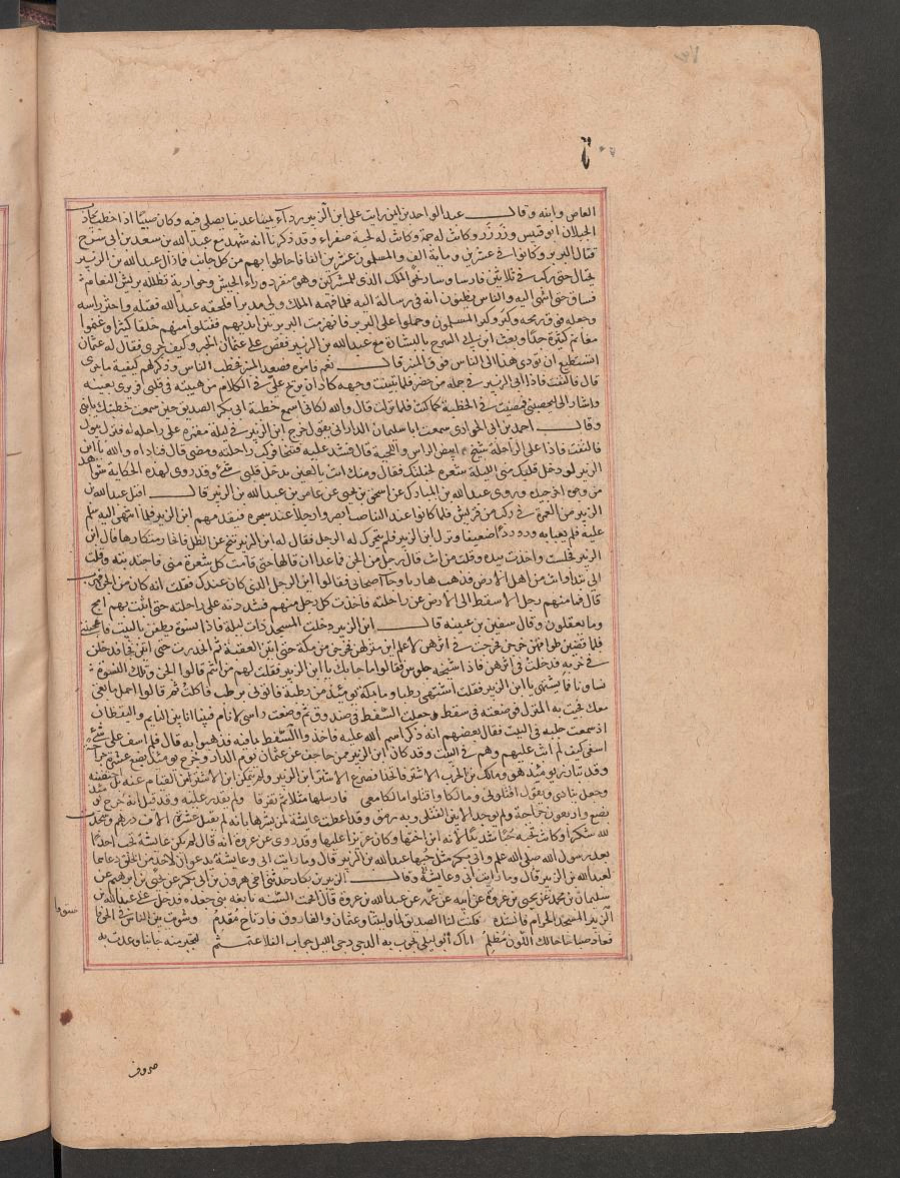 ٦
العاص وابنه وقال عبد الواحد بن ايمن رايت على ابن الزبير رداء يمانيا عدنيا يصلي فيه وكان صيتا اذا خطب تجاوبه
الجبلان ابو قبيس وزرزر وكانت له جمة وكانت له لحية صفراء وقد ذكرنا انه شهد مع عبد الله بن سعد بن ابي سرح
قتال البربر وكانوا في عشرين وماية الف والمسلمون عشرين الفا فاحاطوا بهم من كل جانب فما زال عبد الله بن الزبير
يحتال حتى ركب في ثلاثين فارسا وسار نحو الملك الذي للمشركين وهو منفرد وراء الجيش وجواريه تظلله بريش النعام
فساق حتى انتهى اليه والناس يظنون انه في رسالة اليه فلما فهمه الملك ولى مدبرا فلحقه عبد الله فقتله واحتز راسه
وجعله فوق رمحه وكبر وكبر المسلمون وحملوا على البربر فانهزمت البربر بين ايديهم فقتلوا منهم خلقا كثيرا وغنموا
مغانم كثيرة جدا وبعث ابن ابي السرح بالبشارة مع عبد الله بن الزبير فقص على عثمان الخبر وكيف جرى فقال له عثمان
اتستطيع ان تؤدي هذا الى الناس فوق المنبر قال نعم فامره فصعد المنبر فخطب الناس وذكر لهم كيفية ما جرى
قال فالتفت فاذا ابي الزبير في جملة من حضر فلما تبينت وجهه كاد ان يرتج علي في الكلام من هيبته في قلبي فرمزني بعينه
واشار الي بحصبني فمضيت في الخطبة كما كنت فلما نزلت قال والله لكاني اسمع خطبة ابي بكر الصديق حين سمعت خطبتك يا بني
وقال احمد بن ابي الحواري سمعت ابا سليمان الداراني يقول خرج ابن الزبير في ليلة مقمرة على راحلة له فنزل يبول
فالتفت فاذا على الراحلة شيخ ابيض الراس واللحية قال فشد عليه فتنحى فركب راحلته ومضى قال فناداه والله يا ابن
الزبير لو دخل قلبك مني الليلة شعرة لخبلتك فقال ومنك انت يا لعين يدخل قلبي شئ وقد روي لهذه الحكاية شواهد
من وجوه اخر جيدة وروى عبد الله بن المبارك عن اسحق بن يحيى عن عامر بن عبد الله بن الزبير قال اقبل عبد الله بن
الزبير من العمرة في ركب من قريش فلما كانوا عند المناصب ابصروا رجلا عند شجرة فتقدمهم ابن الزبير فلما انتهى اليه سلم
عليه فلم يعبا به ورد ردا ضعيفا ونزل ابن الزبير فلم يتحرك له الرجل فقال له ابن الزبير تنح عن الظل فانحاز متكارها قال ابن
الزبير فجلست واخذت بيده وقلت من انت قال رجل من الجن فما عدا ان قالها حتى قامت كل شعرة مني فاجتذبته وقلت
قال فما منهم رجل الا سقط الى الارض عن راحلته فاخذت كل رجل منهم فشددته على راحلته حتى اتيت بهم امج
وما يعقلون وقال سفين بن عيينة قال ابن الزبير دخلت المسجد ذات ليلة فاذا نسوة يطفن بالبيت فاعجبنني
فلما قضين طوافهن خرجن فخرجت في اثرهن لاعلم اين منزلهن فخرجن من مكة حتى اتين العقبة ثم انحدرن حتى اتين فجا فدخلن
في خربة فدخلت في اثرهن فاذا مشيخة جلوس فقالوا ما جا بك يا ابن الزبير فقلت لهم من انتم قالوا الجن وتلك النسوة
نساونا فما تشتهي يا ابن الزبير فقلت اشتهي رطبا وما بمكة يومئذ من رطبة فاتوني برطب فاكلت ثم قالوا احمل ما بقي
معك فجيت به المنزل فوضعته في سفط وجعلت السفط في صندوق ثم وضعت راسي لانام فبينا انا بين النايم واليقظان
اذ سمعت جلبة في البيت فقال بعضهم
اسفي كيف لم اثب عليهم وهم في البيت وقد كان ابن الزبير ممن حاجف عن عثمان يوم الدار وجرح يومئذ بضع عشرة جراحة
وجعل ينادي ويقول اقتلوني ومالكا واقتلوا مالكا معي فارسلها مثلا ثم تفرقا ولم يقدر عليه وقد قيل انه جرح يومئذ
بضع واربعون جراحة ولم يوجد الا بين القتلى وبه رمق وقد اعطت عايشة لمن بشرها بانه لم يقتل عشرة الاف درهم وسجدت
لله شكرا وكانت تحبه حبا شديدا لانه ابن اختها وكان عزيزا عليها وقد روي عن عروة انه قال لم تكن عايشة تحب احدا
بعد رسول الله صلى الله عليه وابي بكر مثل حبها عبد الله بن الزبير قال وما رايت ابي وعايشة يدعوان لاحد من الخلق دعاهما
لعبد الله بن الزبير وقال الزبير بن بكار حدثني اخي هرون بن ابي بكر عن يحيى بن ابرهيم عن
سليمان بن محمد عن يحيى بن عروة عن ابيه عن عمه عن عبد الله بن عروة قال اقحمت السنة نابغة بني جعدة فدخل على عبد الله بن
الزبير المسجد الحرام فانشده حكيت لنا الصديق لما وليتنا وعثمان والفاروق فارتاح مقدم وسويت بين الناس في الحق فاستووا
فعاد صباحا حالك اللون مظلم اتاك ابو ليلى يجوب به الدجى دجى الليل جواب الفلاة عتمثم لتجبر منه جانبا دعدعت به
صروف